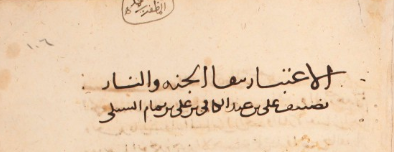 ١٠٦
الاعتبار ببقا الجنه والنار
تصنيف على بن عبد الكافى بن على بن تمام السبكى